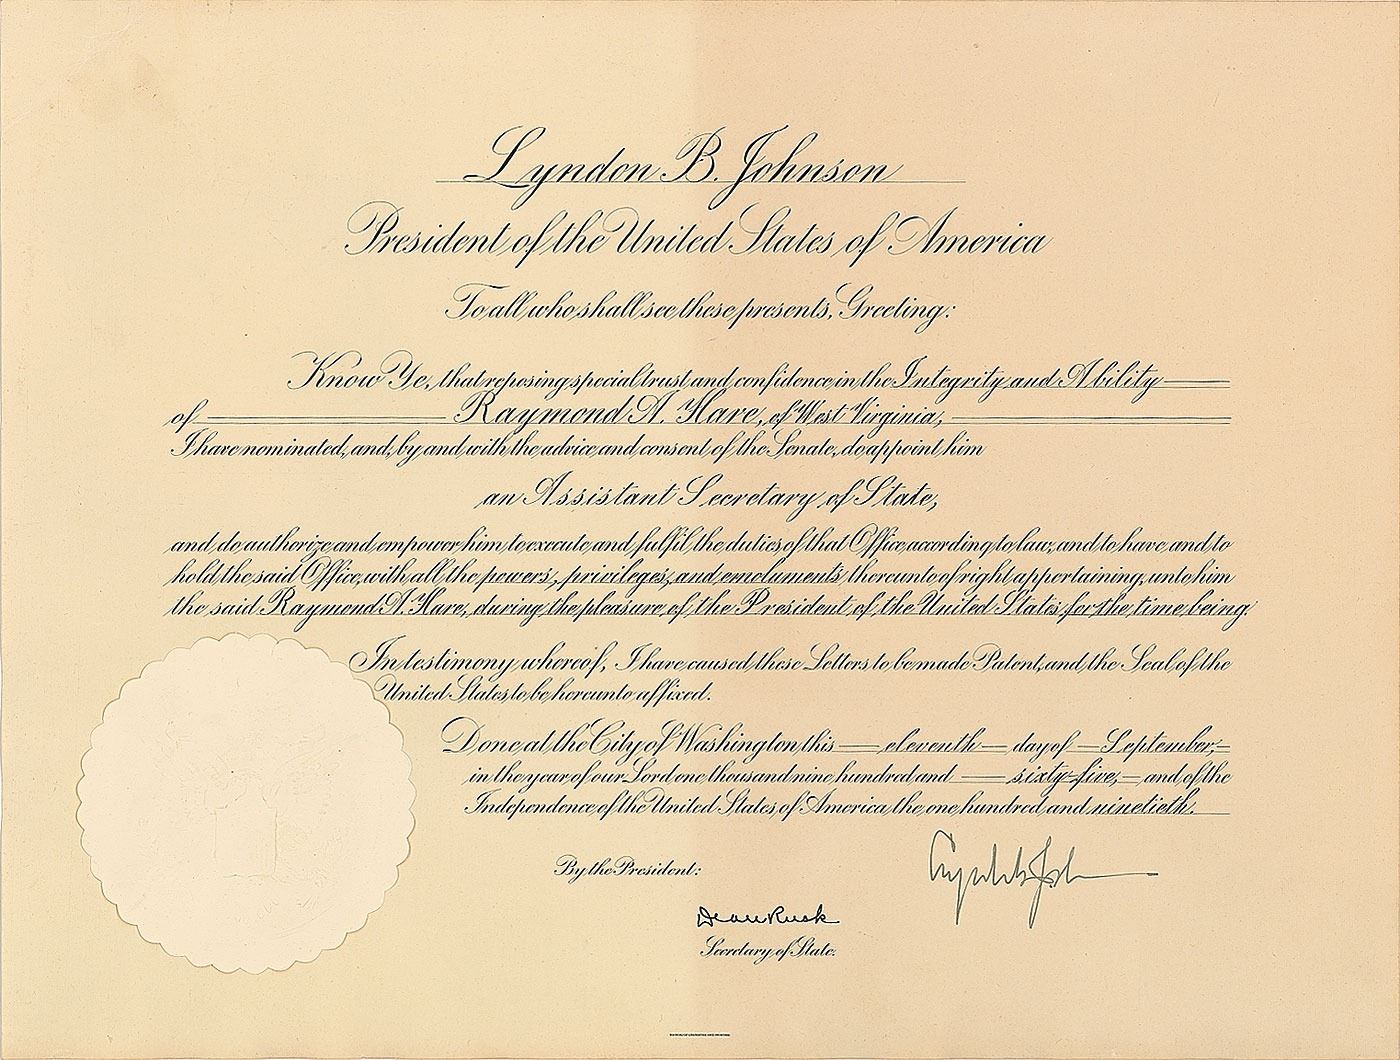 Lyndon B. Johnson
President of the United States of America
To all who shall see these presents, Greeting:
Know Ye, that reposing special trust and confidence in the Integrity and Ability
of Raymond A. Hare, of West Virginia,
I have nominated, and, by and with the advice and consent of the Senate, do appoint him
an Assistant Secretary of State,
and do authorize and empower him to execute and fulfil the duties of that Office according to law, and to have and to
hold the said Office, with all the powers, privileges, and emoluments thereunto of right appertaining, unto him
the said Raymond A. Hare, during the pleasure of the President of the United States for the time being.
In testimony whereof, I have caused these Letters to be made Patent, and the Seal of the
United States to be hereunto affixed.
Done at the City of Washington this eleventh day of September,
in the year of our Lord one thousand nine hundred and sixty-five, and of the
Independence of the United States of America the one hundred and ninetieth.
By the President:
Dean Rusk
Secretary of State.
BUREAU OF ENGRAVING AND PRINTING